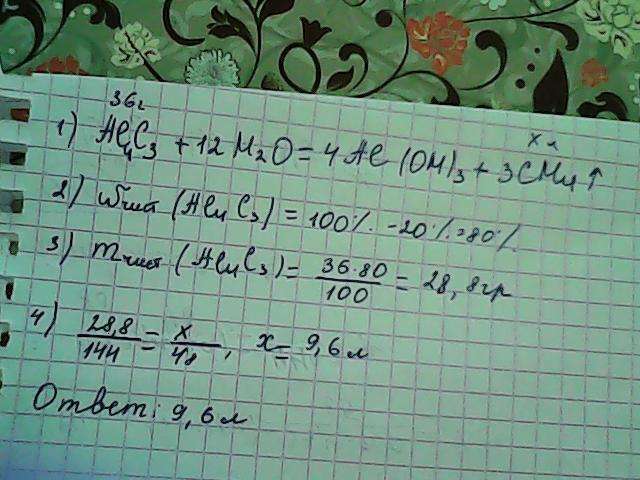 36г
x л
1) Al4C3 + 12H2O = 4Al(OH)3 + 3CH4↑
2) ωчист (Al4C3) = 100% - 20% = 80%.
3) mчист (Al4C3) = 36·80/100 = 28,8гр
4) 28,8/144 = x/48, x = 9,6 л
Ответ: 9,6 л